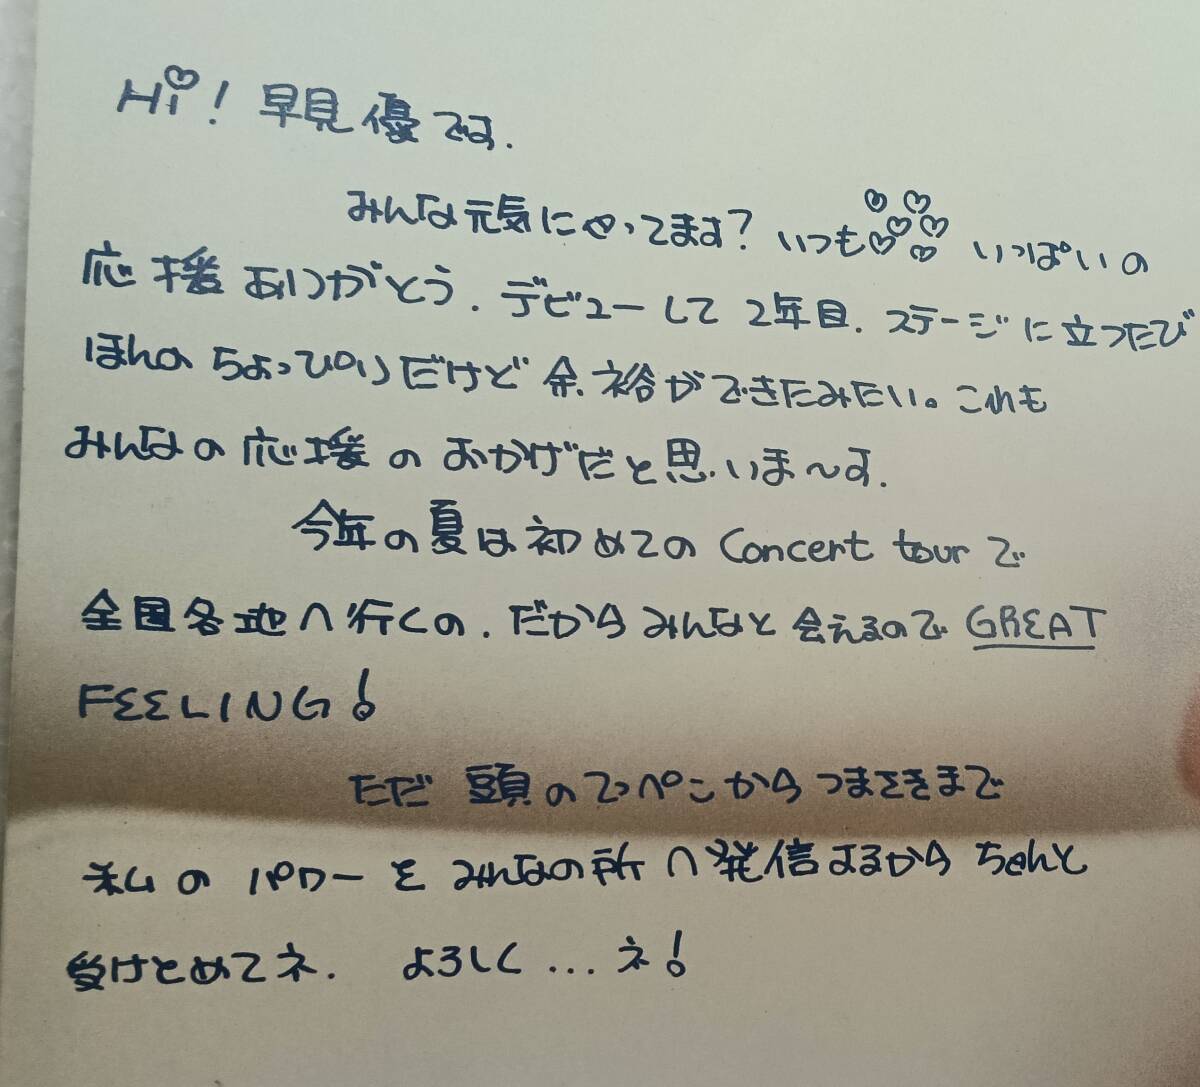 Hi! 早見優です.
みんな元気にやってます? いつも♡♡♡♡♡♡♡いっぱいの
応援ありがとう. デビューして2年目. ステージに立つたび
ほんのちょっぴりだけど余裕ができたみたい。これも
みんなの応援のおかげだと思いま〜す.
今年の夏は初めてのConcert tourで
全国各地へ行くの. だからみんなと会えるのでGREAT
FEELING!
ただ頭のてっぺんからつまさきまで
私のパワーをみんなの所へ発信するからちゃんと
受けとめてネ. よろしく...ネ!